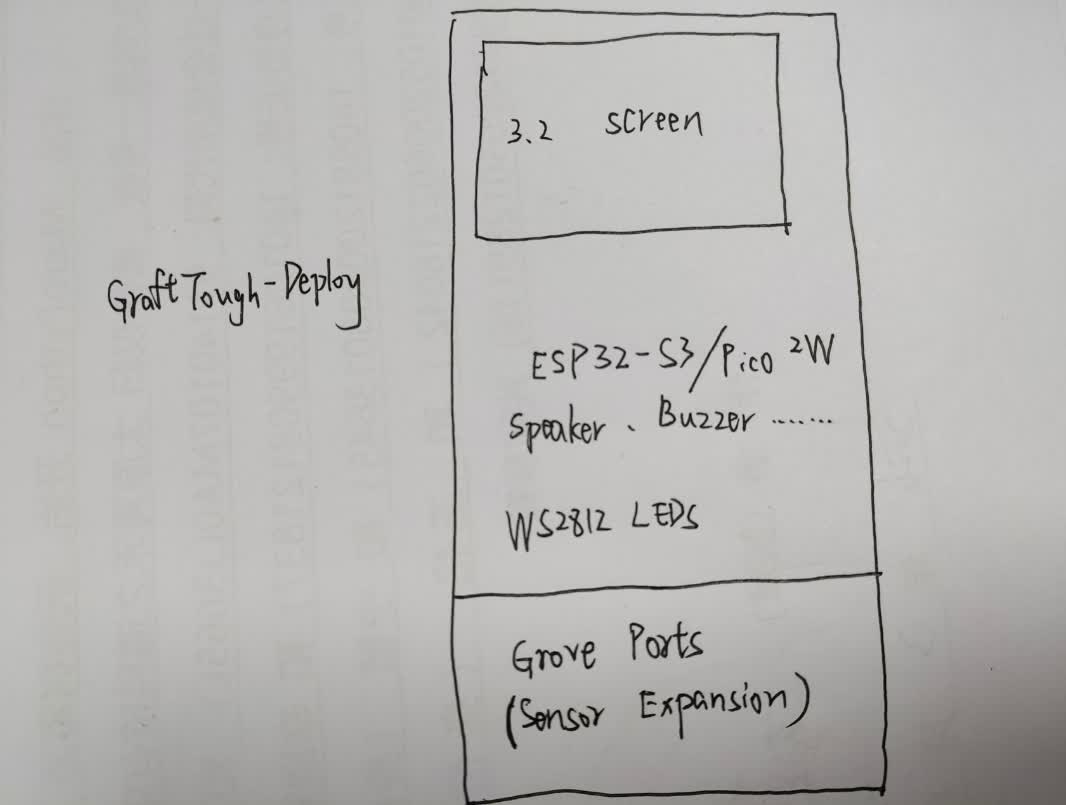 3.2 screen
GraftTough-Deploy
ESP32-S3/Pico 2W
Speaker、Buzzer .......
WS2812 LEDs
Grove Ports
(Sensor Expansion)